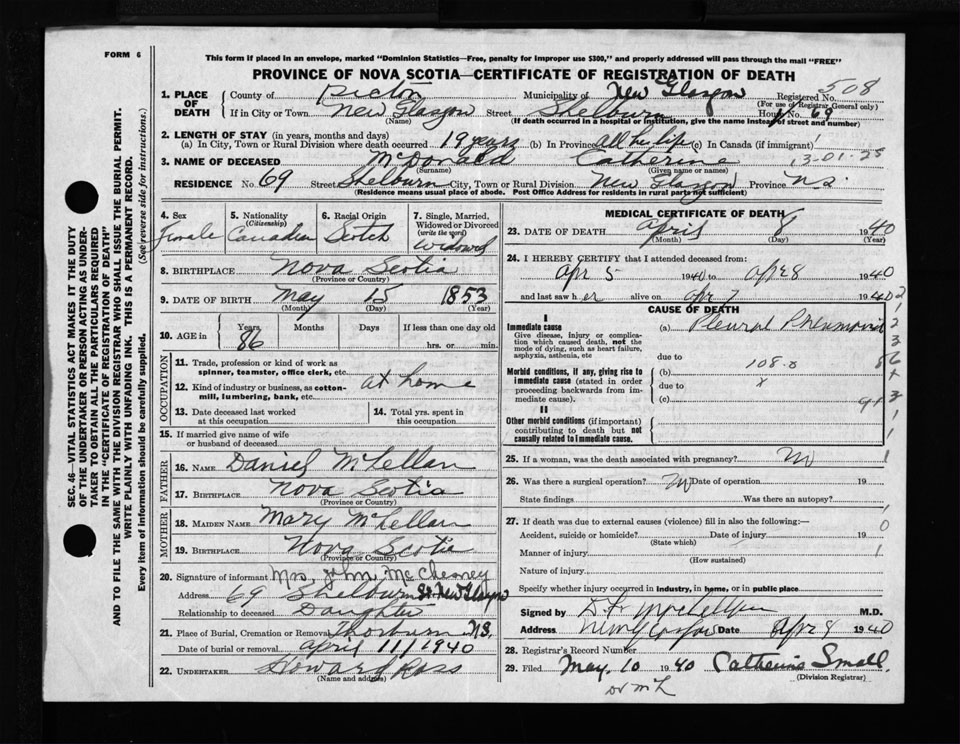 FORM 6
This form if placed in an envelope, marked "Dominion Statistics—Free, penalty for improper use $300," and properly addressed will pass through the mail "FREE"
PROVINCE OF NOVA SCOTIA—CERTIFICATE OF REGISTRATION OF DEATH
508
1. PLACE OF DEATH
County of Pictou Municipality of New Glasgow Registered No.
(For use of Registrar General only)
If in City or Town New Glasgow Street Shelburn House No 69
(Name) (If death occurred in a hospital or institution, give the name instead of street and number)
2. LENGTH OF STAY (in years, months and days)
(a) In City, Town or Rural Division where death occurred 19 years (b) In Province All her life (c) In Canada (if immigrant)
3. NAME OF DECEASED McDonald Catherine 13-01-25
(Surname) (Given name or names)
RESIDENCE No. 69 Street Shelburn City, Town or Rural Division New Glasgow Province N.S.
(Residence means usual place of abode. Post Office Address for residents in rural parts not sufficient)
4. Sex
Female
5. Nationality
(Citizenship)
Canadian
6. Racial Origin
Scotch
7. Single, Married, Widowed or Divorced
(write the word)
Widowed
8. BIRTHPLACE Nova Scotia
(Province or Country)
9. DATE OF BIRTH May 15 1853
(Month) (Day) (Year)
10. AGE in
Years Months Days If less than one day
86 hrs. or min.
OCCUPATION
11. Trade, profession or kind of work as spinner, teamster, office clerk, etc.
12. Kind of industry or business, as cotton-mill, lumbering, bank, etc. at home
13. Date deceased last worked at this occupation
14. Total yrs. spent in this occupation
15. If married give name of wife or husband of deceased
FATHER
16. NAME Daniel McLellan
17. BIRTHPLACE Nova Scotia
(Province or Country)
MOTHER
18. MAIDEN NAME Mary McLellan
19. BIRTHPLACE Nova Scotia
(Province or Country)
20. Signature of informant Mrs. John McChesney
Address 69 Shelburn St New Glasgow
Relationship to deceased Daughter
21. Place of Burial, Cremation or Removal Thorburn N.S.
Date of burial or removal April 11/1940
22. UNDERTAKER Howard Ross
(Name and address)
MEDICAL CERTIFICATE OF DEATH
23. DATE OF DEATH April 8 1940
(Month) (Day) (Year)
24. I HEREBY CERTIFY that I attended deceased from:
Apr 5 1940 to Apr 8 1940
and last saw her alive on Apr 7 1940
CAUSE OF DEATH
I
Immediate cause
Give disease, injury or complication which caused death, not the mode of dying, such as heart failure, asphyxia, asthenia, etc
(a) Pleural Pneumonia
due to
Morbid conditions, if any, giving rise to immediate cause (stated in order proceeding backwards from immediate cause).
(b) 108
due to
(c)
II
Other morbid conditions (if important) contributing to death but not causally related to immediate cause.
25. If a woman, was the death associated with pregnancy? No
26. Was there a surgical operation? No Date of operation 19
State findings Was there an autopsy?
27. If death was due to external causes (violence) fill in also the following:—
Accident, suicide or homicide? Date of injury 19
(State which)
Manner of injury
(How sustained)
Nature of injury
Specify whether injury occurred in industry, in home, or in public place
Signed by M.D.
Address New Glasgow Date Apr 9 1940
28. Registrar's Record Number
29. Filed May 10 1940 Catherine Small
(Division Registrar)
SEC. 46—VITAL STATISTICS ACT MAKES IT THE DUTY OF THE UNDERTAKER OR PERSON ACTING AS UNDERTAKER TO OBTAIN ALL THE PARTICULARS REQUIRED IN THE "CERTIFICATE OF REGISTRATION OF DEATH" AND TO FILE THE SAME WITH THE DIVISION REGISTRAR WHO SHALL ISSUE THE BURIAL PERMIT.
WRITE PLAINLY WITH UNFADING INK. THIS IS A PERMANENT RECORD.
Every item of information should be carefully supplied. (See reverse side for instructions.)